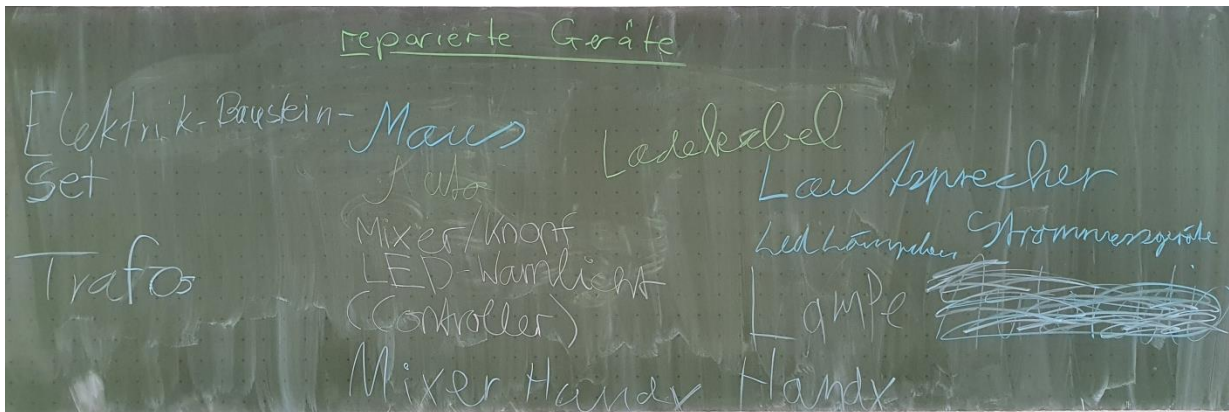 reparierte Geräte
Elektrik-Baustein-
Set
Trafos
Maus
Auto
Mixer/Knopf
LED-Warnlicht
(Controller)
Mixer Handy Handy
Ladekabel
Lautsprecher
Led Lämpchen Strommessgeräte
Lampe